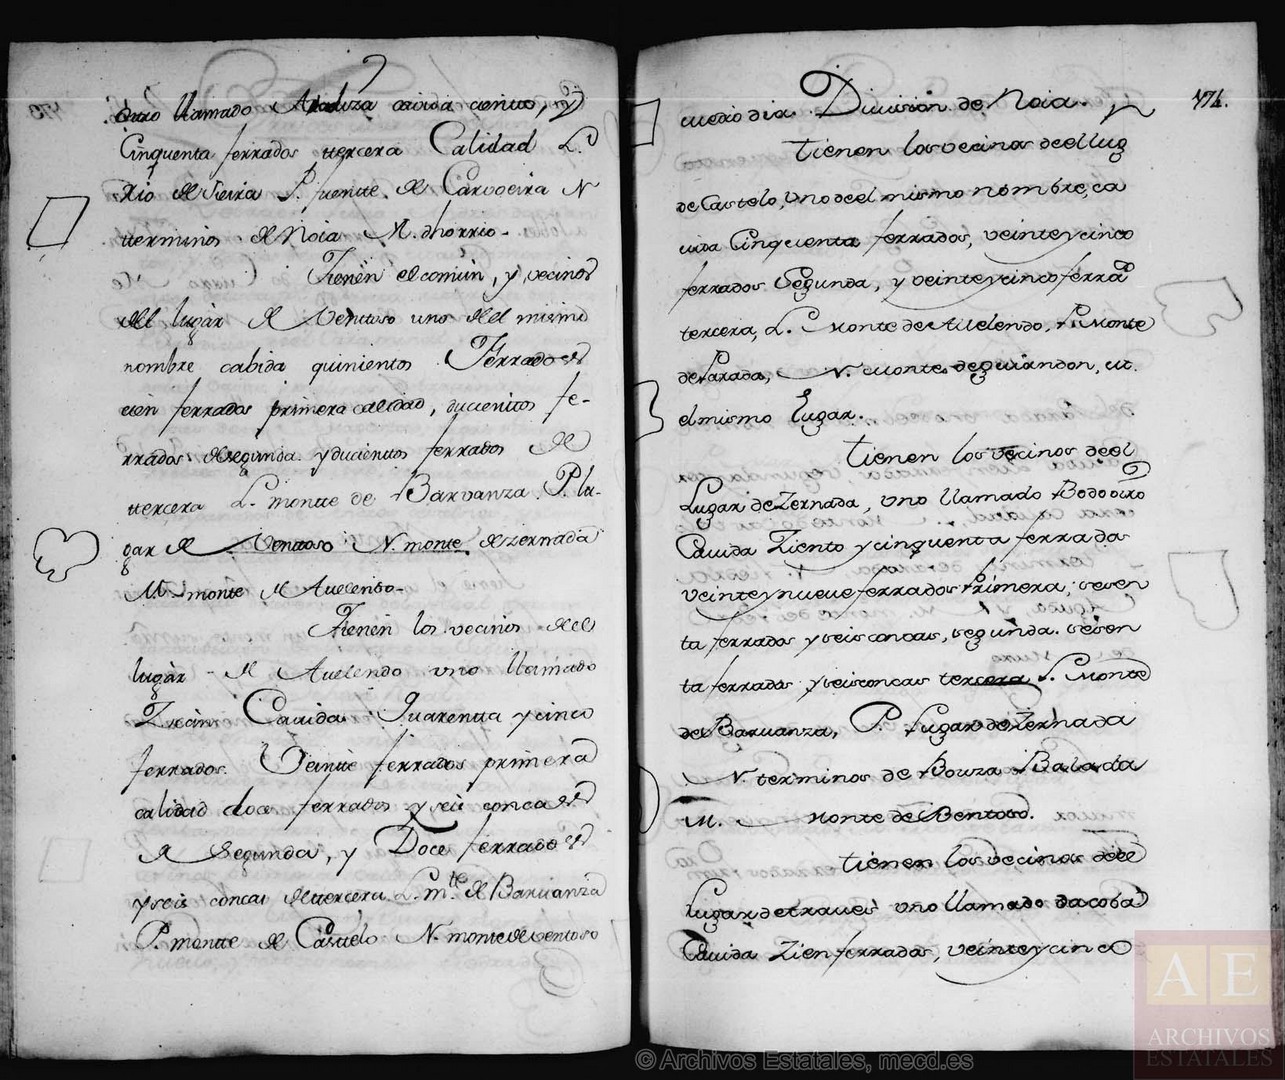 otro llamado Analiza cavida ciento, y
Cinquenta ferrados tercera Calidad L.
Rio de Sierra P. fuente de Carvoeira N
terminos de Noia M. dhorrio-
Tienen el comun, y vecinos
del lugar de Ventoso uno del mismo
nombre cabida quinientos Ferrados
cien ferrados primera calidad, ducientos fe-
rrados de segunda y ducientos ferrados de
tercera L. monte de Barvanza P. lu-
gar de Ventoso N. monte de zernada
M. monte de Avelenso-
Tienen los vecinos del
lugàr de Avelendo uno llamado
Cavida Quarenta y cinco
ferrados. Veinte ferrados primera
calidad doce ferrados y seis concas
de Segunda, y Doce ferrados
y seis concas de tercera L. mte. de Barvanza
P. monte de Castelo N. monte de ventoso
474.
cuerodia. Division de Noia.
Tienen los vecinos de el lug
de Castelo, uno de el mismo nombre, ca
vida Cinquenta ferrados, veinte y cinco
ferrados Segunda, y veinte y cinco ferra
tercera, L. Monte de Avelendo, P. Monte
de Parada, N. Monte de guiandon, M.
el mismo Lugar.
Tienen los vecinos de el
Lugar de Zernada, uno llamado Bodooiro
Cavida Ziento y cinquenta ferrados
veinte y nueve ferrados Primera; sesen
ta ferrados y seis concas, segunda. sesen
ta ferrados y seis concas tercera L. Monte
de Barvanza, P. Lugar de Zernada
N. terminos de Bouza Balada
M. Monte de Bentoso.
Tienen los vecinos de le
Lugar de traves uno llamado da coba
Cavida Zien ferrados, veinte y cinco
AE
ARCHIVOS
ESTATALES
© Archivos Estatales, mecd.es